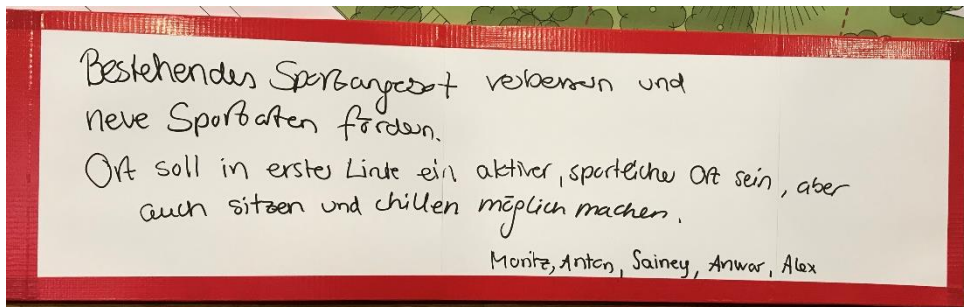 Bestehendes Sportangebot verbessern und
neue Sportarten fördern.
Ort soll in erster Linie ein aktiver, sportlicher Ort sein, aber
auch sitzen und chillen möglich machen.
Moritz, Anton, Sainey, Anwar, Alex